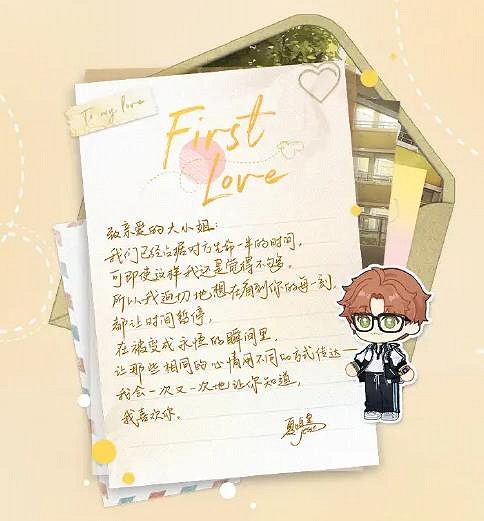 To my love
First
Love
致亲爱的大小姐：
我们已经占据对方生命一半的时间，
可即使这样我还是觉得不够。
所以我迫切地想在看到你的每一刻，
都让时间暂停，
在被变成永恒的瞬间里，
让那些相同的心情用不同的方式传达——
我会一次又一次地让你知道，
我喜欢你。
夏鸣星